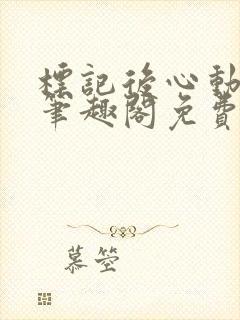 標記後心動
筆趣閣免費
慕箜